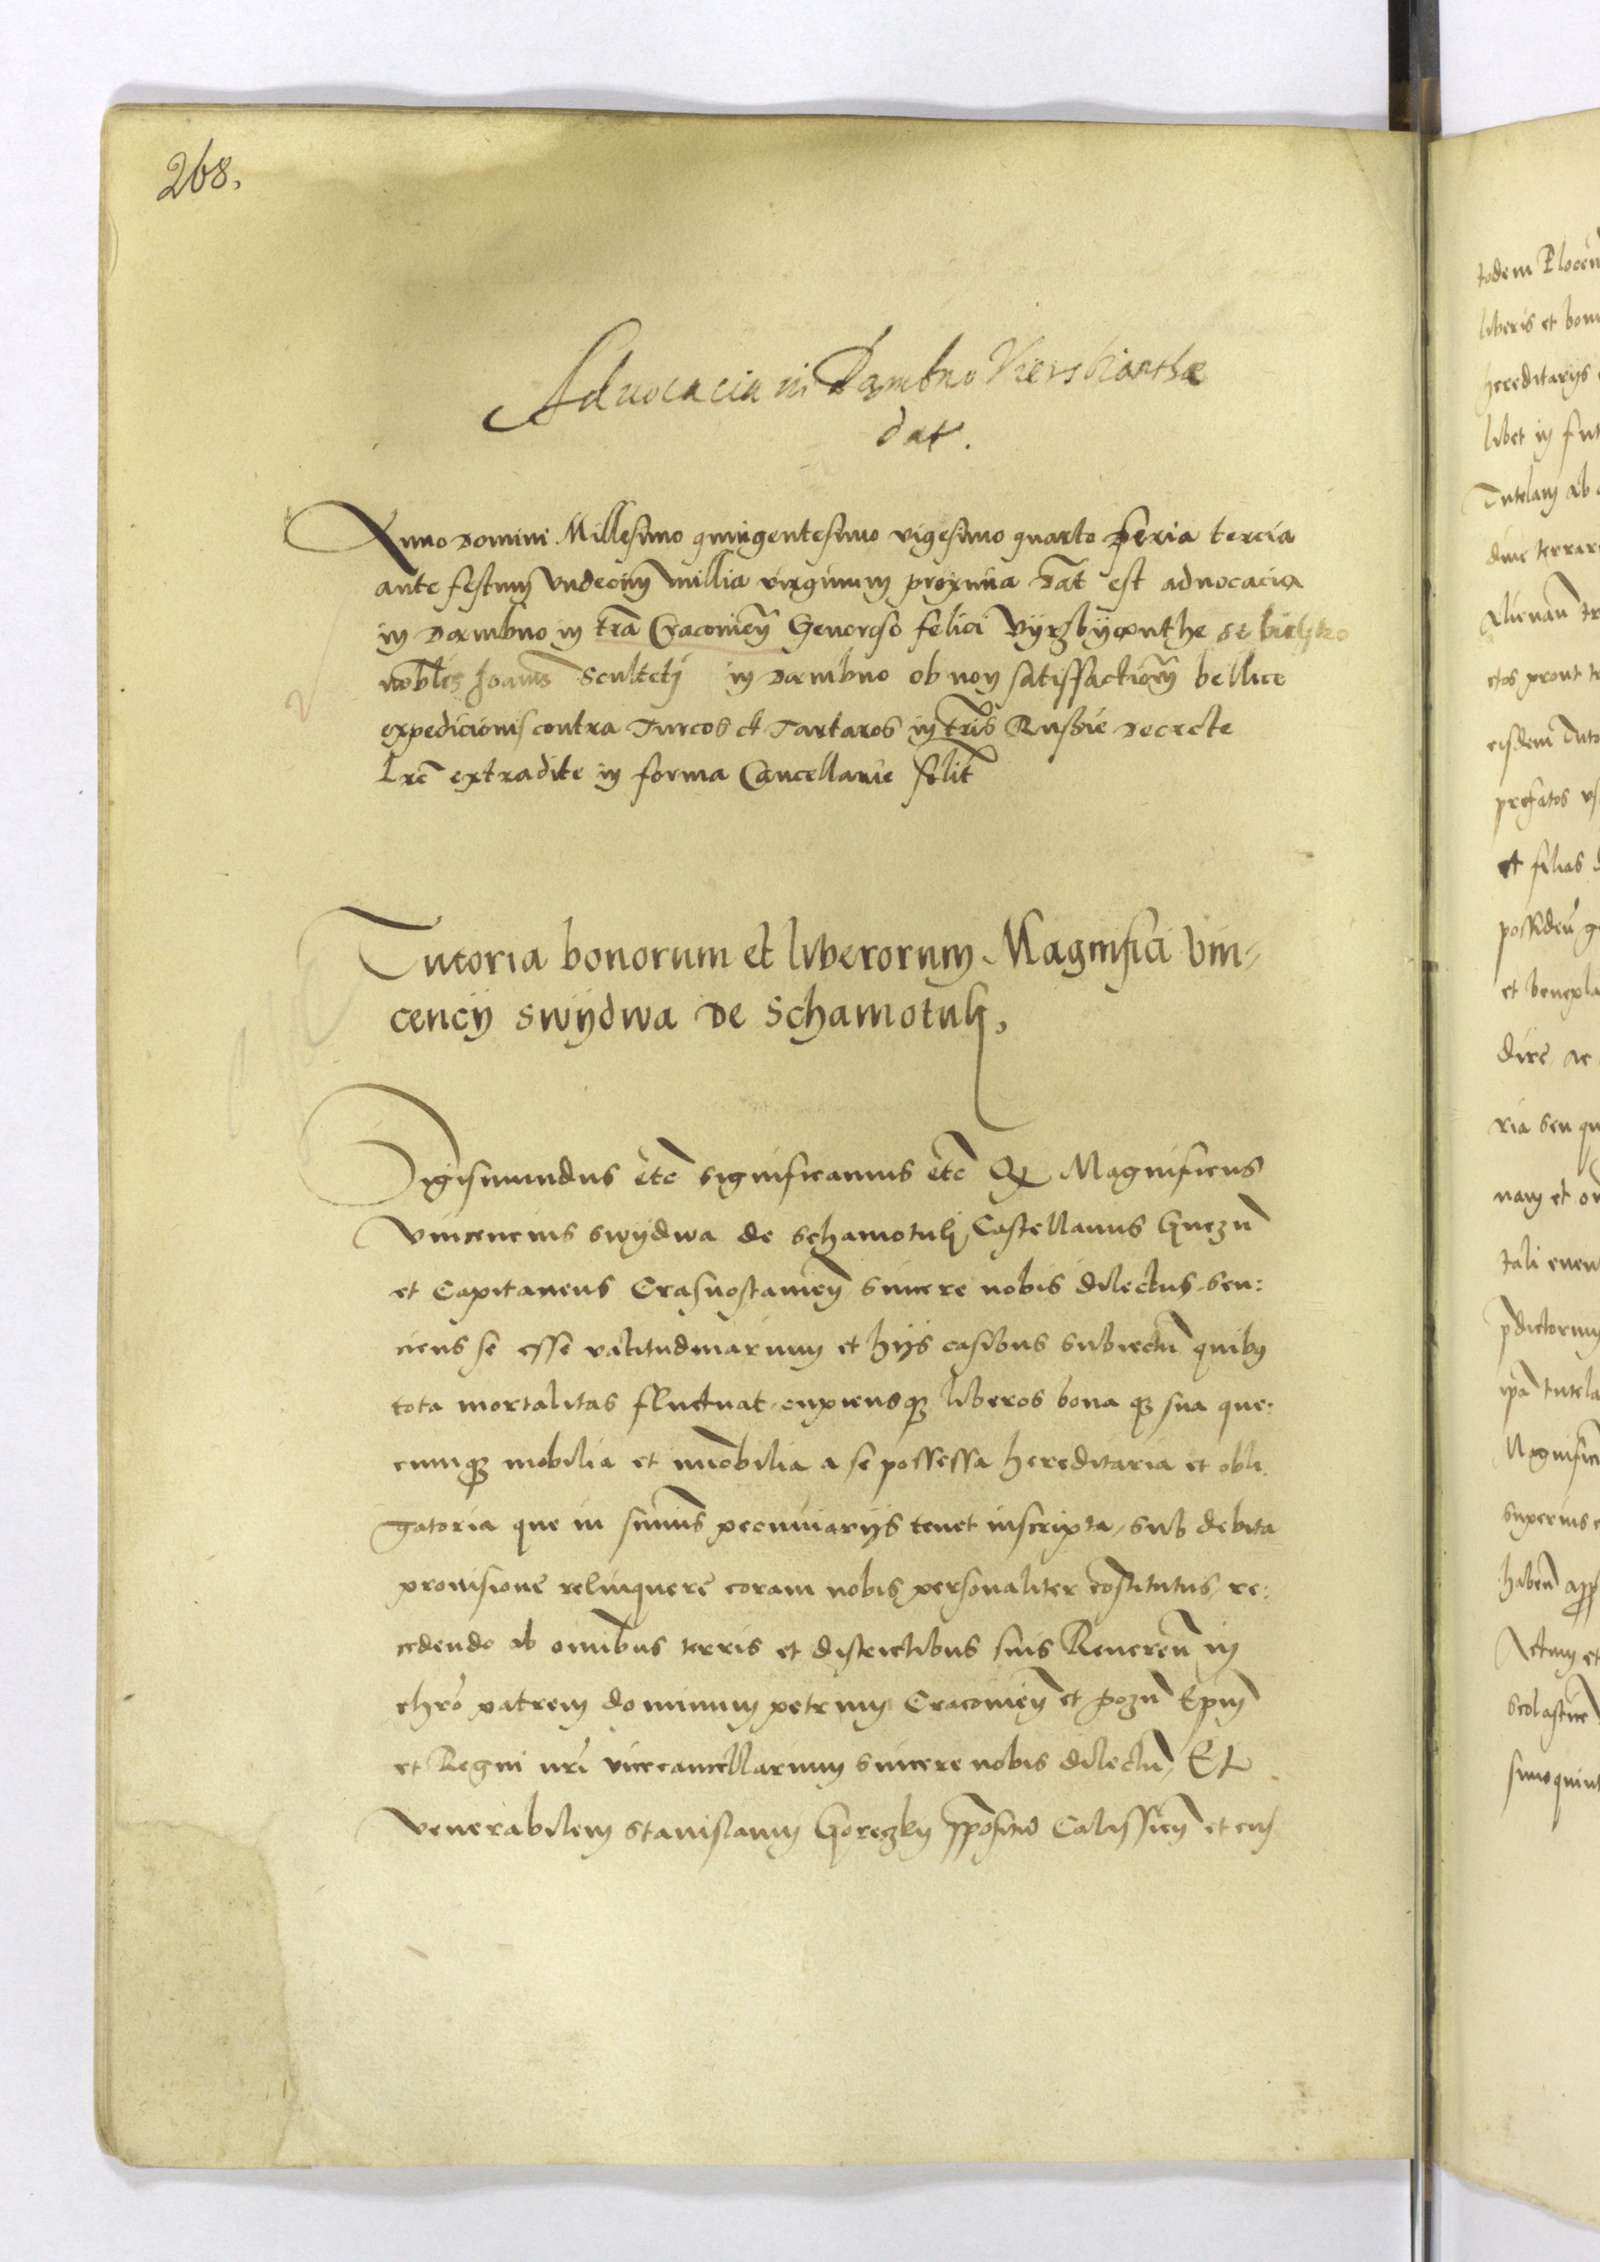 268.
Aduocacia in Dambno Viersbiantha
dat.
Anno domini Millesimo quingentesimo vigesimo quarto Feria tercia
ante festum vndecim millia virginum proxima Dat est aduocacia
in Dambno in tra Cracouien Generoso felici Vyrzbyantha de bielsko
nobles Joanis Sculteti in Dambno ob non satisffactionem bellice
expedicionis contra Turcos et Tartaros in tris Russie Decrete
Lre extradite in forma Cancellarie solit
Tutoria bonorum et liberorum Magnifici Vin-
cency Swydwa De Schamotuli,
Sigismundus etc significamus etc Q Magnificus
Vincencius swydwa de schamotuli Castellanus Gnezn
et Capitaneus Crasnostamien sincere nobis dilectus sen:
ciens se esse valitudinarium et hijs casibus subiectu quibus
tota mortalitas fluctuat cupiensq liberos bona q sua que:
cumq mobilia et imobilia a se possessa hereditaria et obli
gatoria que in sumis pecuniarijs tenet inscripta, sub debita
prouisione relinquere coram nobis personaliter costitutus, re:
cedendo ab omibus terris et districtibus suis Reueren in
chro patrem dominum petrum Cracouien et pozn Epum
et Regni nri vicecancellarium sincere nobis dilectu, Et
Venerabilem Stanislaum Gorezky ppositu Calissien et cus
todem Plocen
liberis et bon
hereditarijs
libet in fut
Tutelam ab
etos prout
eisdem Tuto
prefatos vs
et filias
possiden
et benepla
dire ac
ria seu qu
nam et om
tali euen
pdictorum
ipa tutela
Magnific
superius
haben app
Actum et
scolastic
simoquint